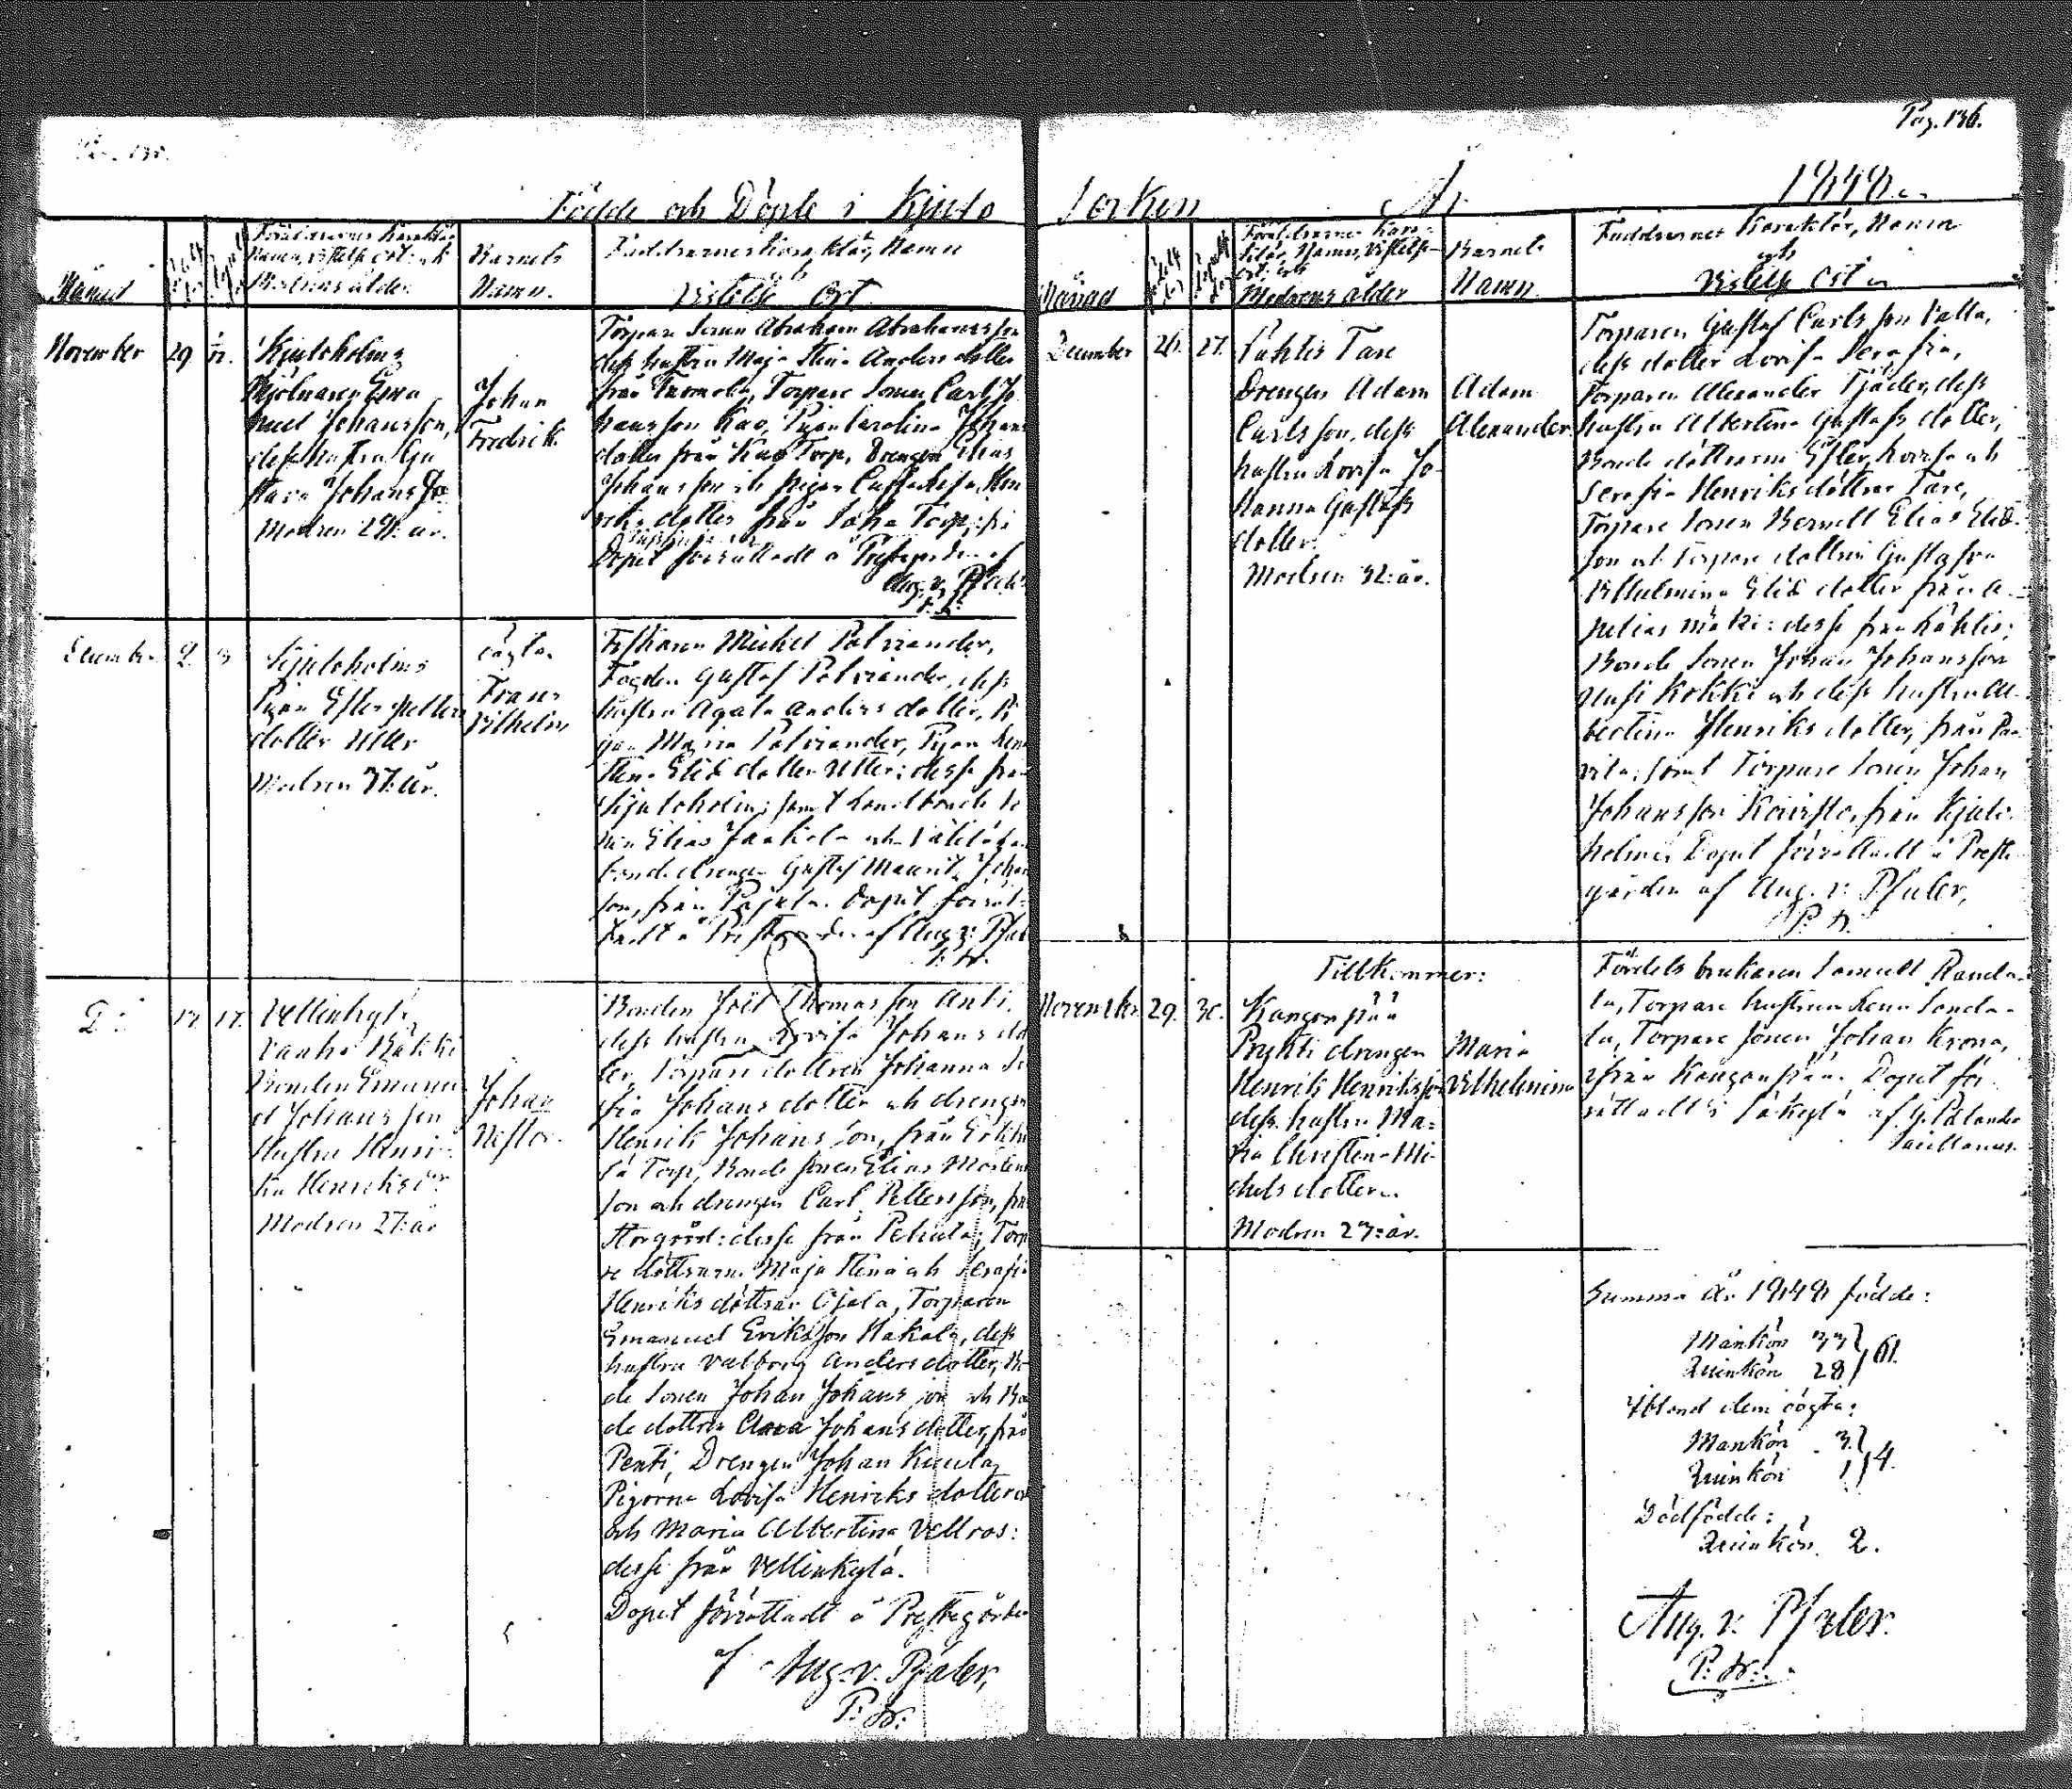 Pag. 136.
Födde och Döpte i Kjulo
Månad
Föräldrarnes Karaktär
Namn, vistelse ort och
Modrens ålder
Barnets
Namn.
Faddrarnes Karaktär, Namn
och
Vistelse Ort
November 29
Kjuloholms
Mjölnaren Ema
nuel Johansson,
dess hustru Gu
stava Johans
Modren 28: år.
Johan
Fredrik
Torpare Sonen Abraham Abrahamsson
dess hustru Maja Stina Anders dotter
från Tammola, Torpare Sonen Carl Jo
hansson Kao, Pigan Carolina Johans
dotter från Kao Torp, Drengen Elias
Johansson och pigan
dotter från Torp:
Dopet förrättadt å Prestgården af
Aug. v. Pfaler
December 2. 3
Kjuloholms
Pigan Ester
dotter Utter
Modren 37: år.
oägta
Frans
Vilhelm
Fiskaren Michel Palviander,
Fogden Gustaf Palviander, dess
hustru Agata Anders dotter, Pi
gan Maria Palviander, Pigan
Stina dotter Utter: desse från
Kjuloholm; samt Landbonde
Elias Jaakola och
bonde drengen Gustaf Maurit Johan
son, från Pajula. Dopet förrät-
tadt å Prestgården af Aug. v. Pfal
P: Dr.
Do 17.
Vellinkylä
Vanha Kåkki
Bonden Emanu
el Johansson
Hustru Henri
ka Henriksdr
Modren 27: år
Johan
Nestor.
Bonden Joel Thomasson Anti,
dess hustru Lovisa Johans dot
ter, Torpare dottren Johanna Se
rafia Johans dotter och drengen
Henrik Johansson, från
Torp, Bonde sonen Elias Mårtens
son och drengen Carl Pettersson, från
Storgård: desse från Pehula; Torpa
re döttrarne Maja Stina och Serafia
Henriks döttrar Ojala, Torparen
Emanuel Eriksson Hakala, dess
hustru Valborg Anders dotter, Bon
de Sonen Johan Johansson och Bon
de dottren Clara Johans dotter, från
Penti, Drengen Johan
Pigorne Lovisa Henriks dotter
och Maria Albertina Vellros:
desse från Vellinkylä.
Dopet förrättadt å Prestegården
af Aug. v. Pfaler,
P: Dr.
Socken År 1848.
Månad
Föräldrarnes Karak-
tär, Namn, Vistelse-
ort och
Modrens ålder
Barnets
Namn.
Faddrarnes Karaktär, Namn
och
Vistelse Ort
December 26. 27.
Kähtis Tare
Drengen Adam
Carlsson, dess
hustru Lovisa Jo
hanna Gustafs
dotter.
Modren 32: år.
Adam
Alexander.
Torparen Gustaf Carlsson Valla,
dess dotter Lovisa Serafia,
Torparen Alexander Tjäder, dess
hustru Albertina Gustafs dotter,
Bonde döttrarne Ester, Lovisa och
Serafia Henriks döttrar Tare,
Torpare Sonen Bernell Elias
son och Torpare dottren Gustafva
Vilhelmina dotter från
mäki: desse från Kähtis;
Bonde Sonen Johan Johansson
Uusi Kokki och dess hustru Al-
bertina Henriks dotter, från
samt Torpare Sonen Johan
Johansson Koivisto, från Kjulo
holm. Dopet förrättadt å Prest-
gården af Aug. v. Pfaler,
P: Dr.
Tillkommer:
November 29. 30.
Kangonpää
Pryhti drengen
Henrik Henriksson
dess hustru Ma-
ria Christina Mi-
chels dotter.
Modren 27: år.
Maria
Vilhelmina
Fördels brukaren Samuel Randa-
la, Torpare hustrun Lena Sanda-
la, Torpare Sonen Johan Krona,
från Kangonpää. Dopet för-
rättadt i Säkylä af G. Palander
Sacellanus.
Summa År 1848 födde:
Mankön 33
Quinkön 28 } 61.
Ibland dem oägta:
Mankön 3
Quinkön 1 } 4.
Dödfödde:
Quinkön 2.
Aug. v. Pfaler.
P: Dr.